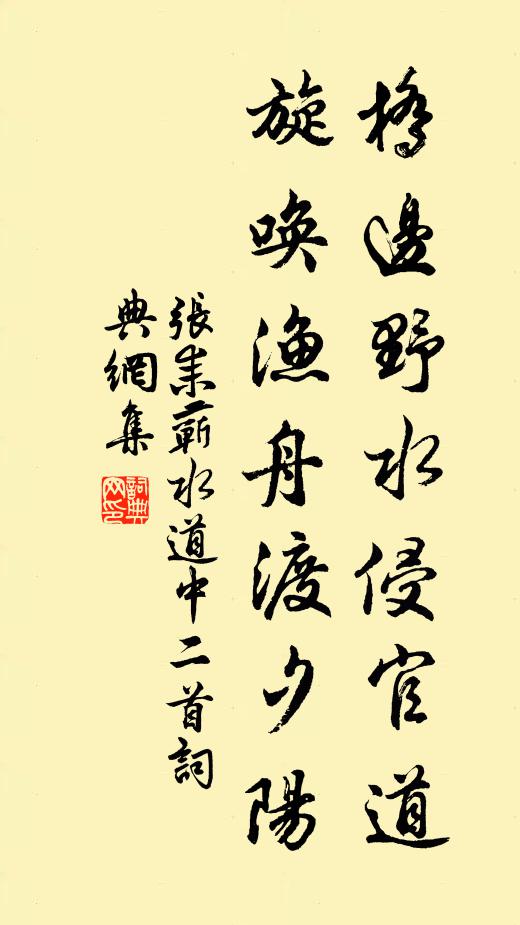 橋邊野水侵官道
旋喚漁舟渡夕陽
張耒蘄水道中二首詞
典網集
詞典網印